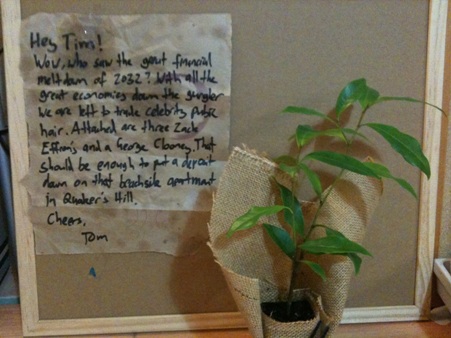 Hey Tim!
Wow, who saw the great financial
meltdown of 2032? With all the
great economies down the gurgler
we are left to trade celebrity pubic
hair. Attached are three Zack
Effron's and a George Clooney. That
should be enough to put a deposit
down on that beachside apartment
in Quaker's Hill.
Cheers,
Tom